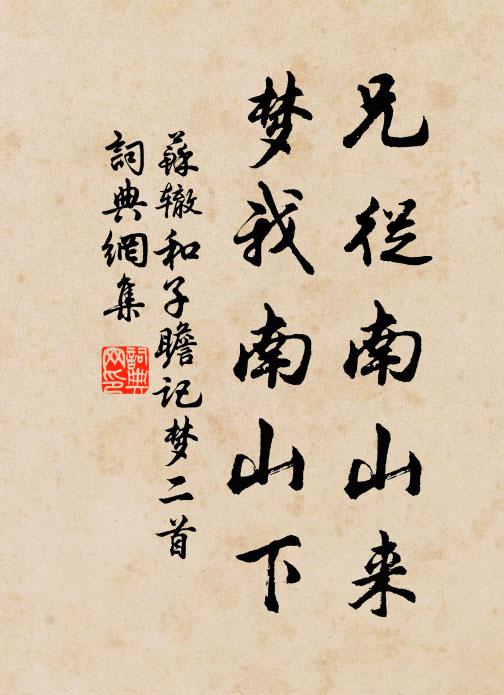 兄從南山来
梦我南山下
蘇辙和子瞻记梦二首
詞典網集
詞典网印